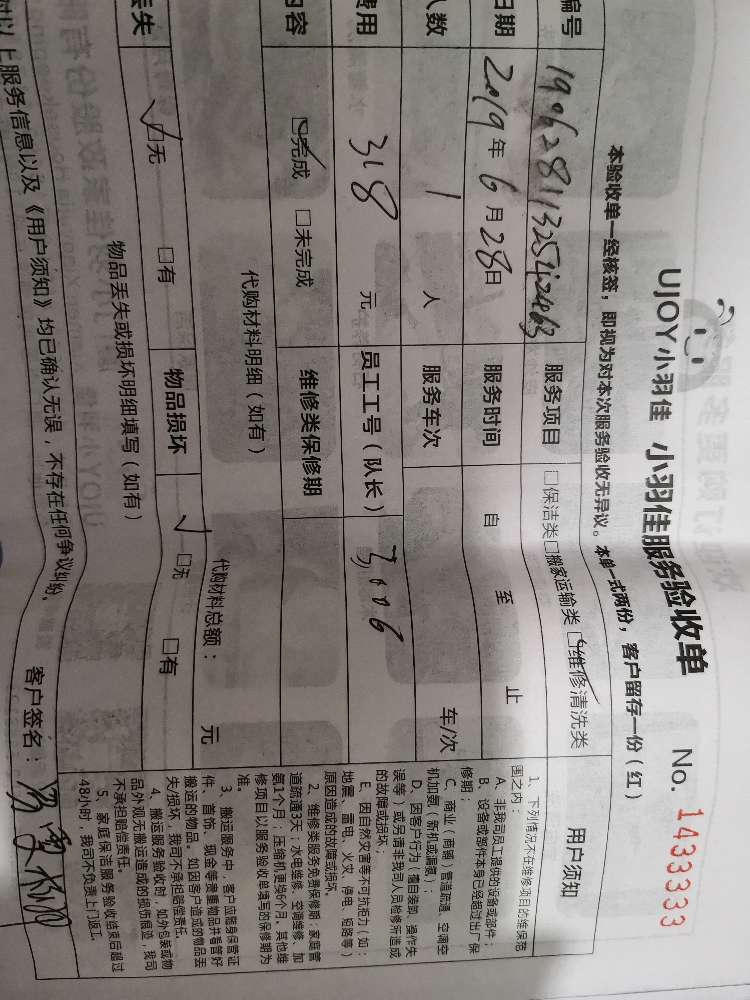 UJOY小羽佳 小羽佳服务验收单 No. 1433333
本验收单一经核签，即视为对本次服务验收无异议。本单一式两份，客户留存一份（红）
编号 服务项目 □保洁类□搬家运输类□维修清洗类
日期 2019年6月28日 服务时间 自 至 止
人数 1 人 服务车次 车/次
费用 318 元 员工工号（队长） 3006
内容 □完成 □未完成 维修类保修期
代购材料明细（如有） 代购材料总额： 元
丢失 □无 □有 物品损坏 □无 □有
物品丢失或损坏明细填写（如有）
对以上服务信息以及《用户须知》均已确认无误，不存在任何争议纠纷。 客户签名：
用户须知
1、下列情况不在维修项目的维保范
围之内：
A、非我司员工提供的设备或部件；
B、设备或部件本身已经超过出厂保
修期；
C、商业（商铺）管道疏通、空调空
机加氨（新机或漏氨）；
D、因客户行为（擅自装卸、操作失
误等）或另请非我司人员检修所造成
的故障或损坏；
E、因自然灾害等不可抗拒力（如：
地震、雷电、火灾、停电、短路等）
原因造成的故障或损坏。
2、维修类服务免费保修期：家庭管
道疏通3天；水电维修、空调维修、加
氨1个月；压缩机更换6个月，其他维
修项目以服务验收单填写的保修期为
准。
3、搬运服务中，客户应随身保管证
件、首饰、现金等贵重物品并看管好
搬运的物品。如因客户造成的物品丢
失/损坏，我司不承担赔偿责任。
4、搬运服务验收时，如外包装或物
品外观无搬运造成的损伤痕迹，我司
不承担赔偿责任。
5、家庭保洁服务验收结束后超过
48小时，我司不负责上门返工。